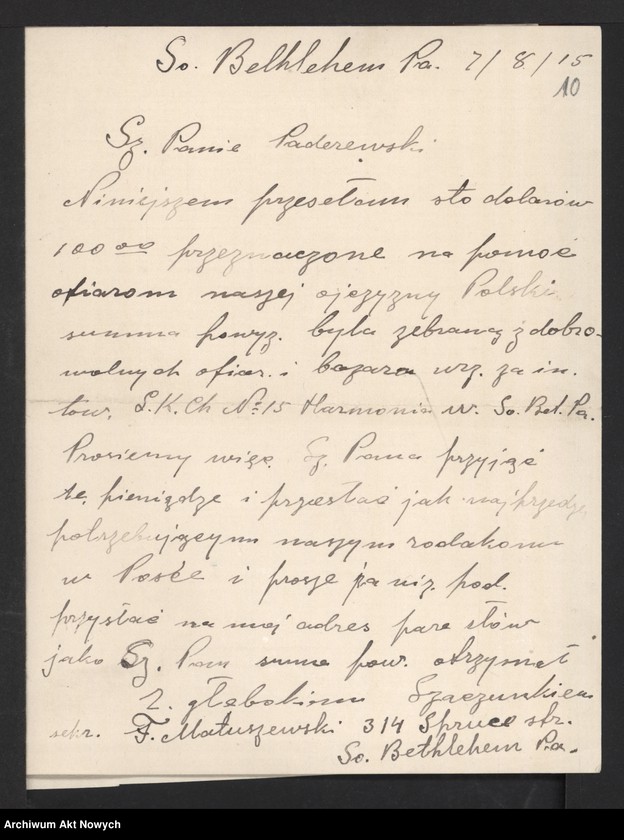 So. Bethlehem Pa. 7/8/15
10
Sz. Panie Paderewski
Niniejszem przesełam sto dolarów
100 00 przeznaczone na pomoć
ofiarom naszej ojczyzny Polski
summa powyż. była zebraną z dobro-
wolnych ofiar. i bazara urz. za in.
tow. L.K.Ch No 15 Harmonia w. So. Bet. Pa.
Prosiemy więc Sz. Pana przyjąć
te pieniądze i przesłać jak najprzędze
potrzebującym naszym rodakom
w Posće i prosze ja niż. pod.
przysłać na moj adres pare słów
jako Sz. Pan summe pow. otrzymał
Z. głebokim Szaczunkiem
sekr. F. Matuszewski 314 Spruce str.
So. Bethlehem Pa.
Archiwum Akt Nowych